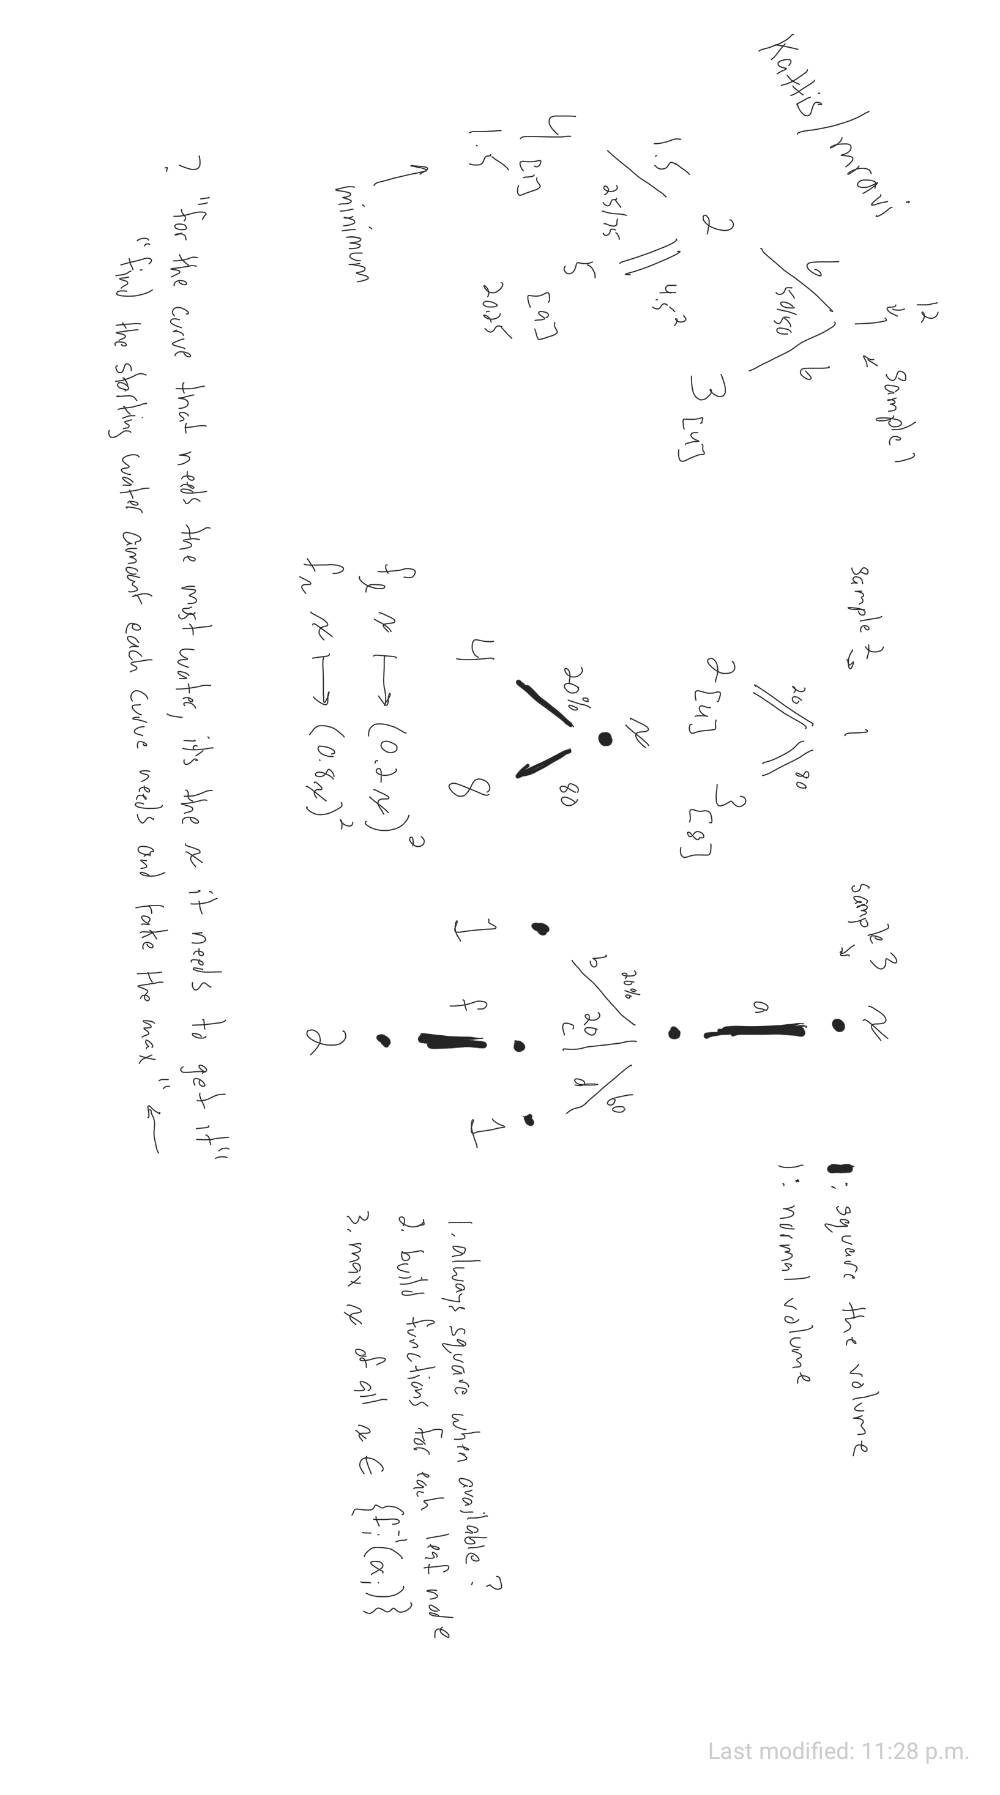 Kattis/mravi
12
1
sample 1
6
6
50/50
2
3 [4]
1.5
4.5²
25/75
4 [1]
5
[9]
1.5
20.25
minimum
sample 2
1
20
80
2 [4]
3
[8]
x
20%
80
4
8
f_l x ↦ (0.2x)²
f_r x ↦ (0.8x)²
sample 3
x
a
20%
b
20
c
60
d
1
f
1
2
: square the volume
| : normal volume
1. always square when available?
2. build functions for each leaf node
3. max x of all x ∈ {f_i⁻¹(α_i)}
? "for the curve that needs the most water, it's the x it needs to get it"
"find the starting water amount each curve needs and take the max" ←
Last modified: 11:28 p.m.